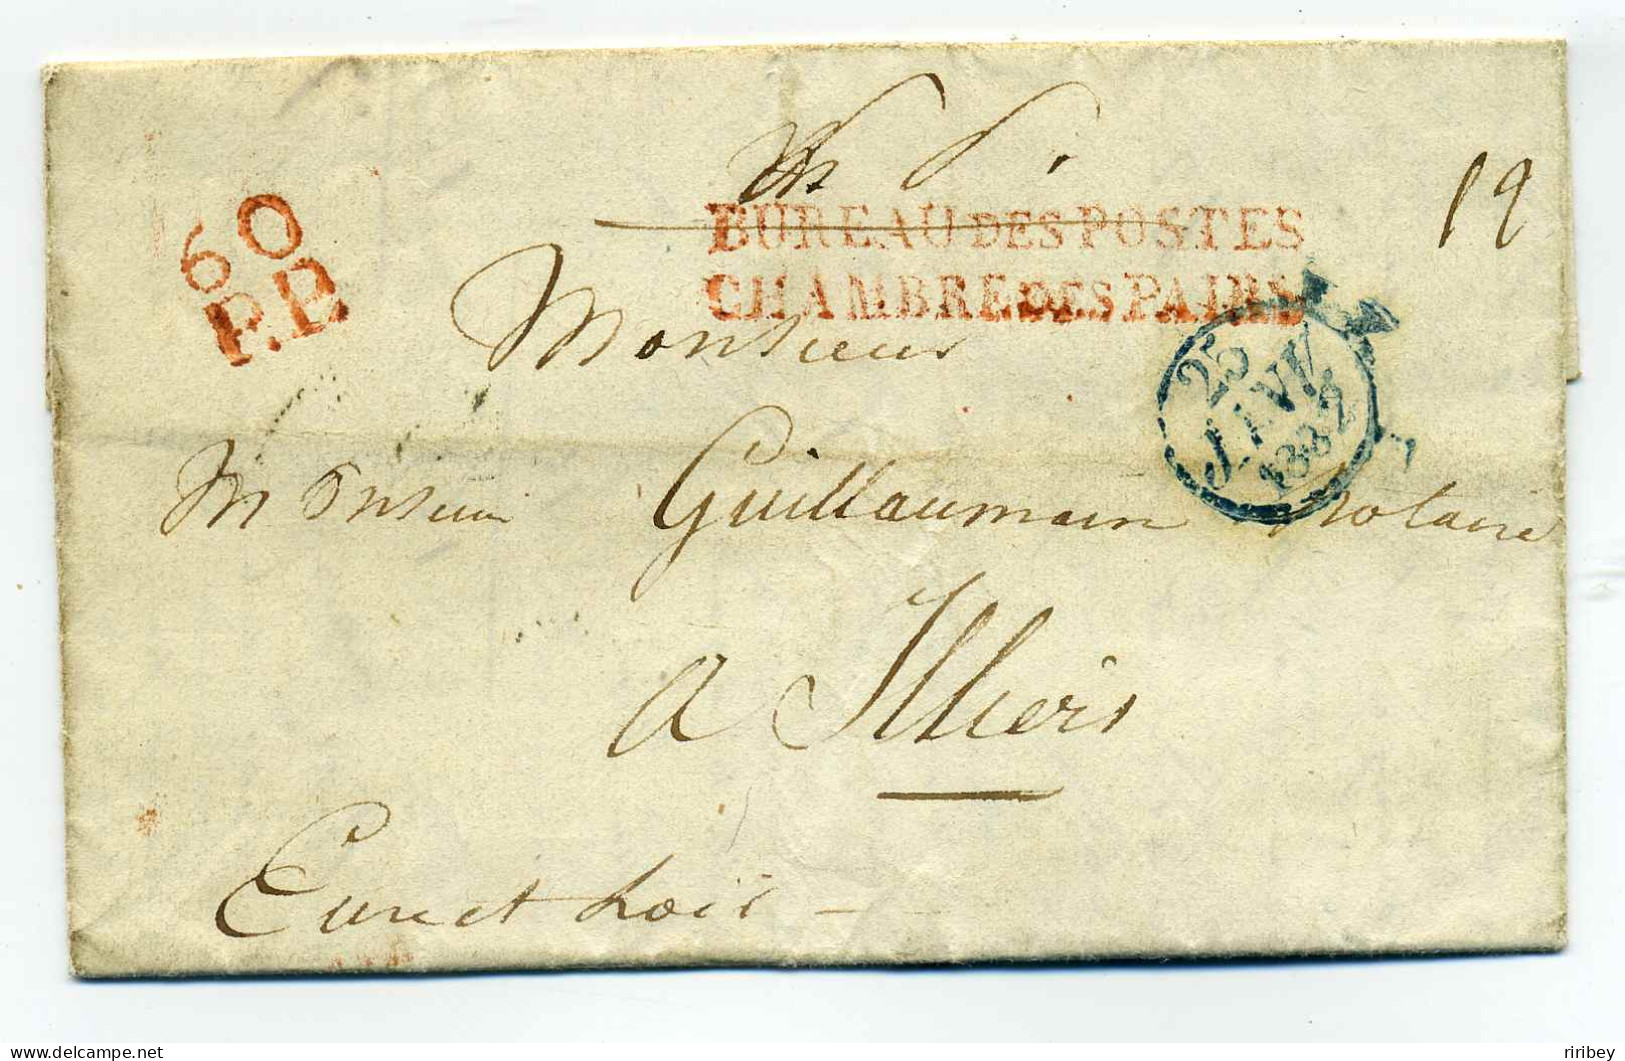 P. P.
19
60
P.P.
BUREAU DES POSTES
CHAMBRE DES PAIRS
Monsieur
25
JANV
1832
Monsieur Guillaumain Notaire
A Illiers
Eure et Loir
riribey